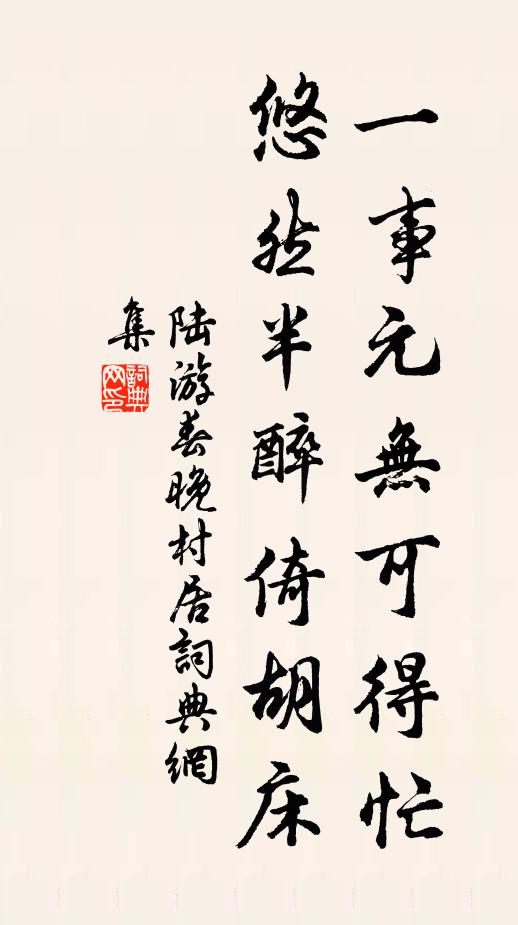 一事元無可得忙
悠然半醉倚胡床
陆游春晚村居詞典網
集
詞典
网印